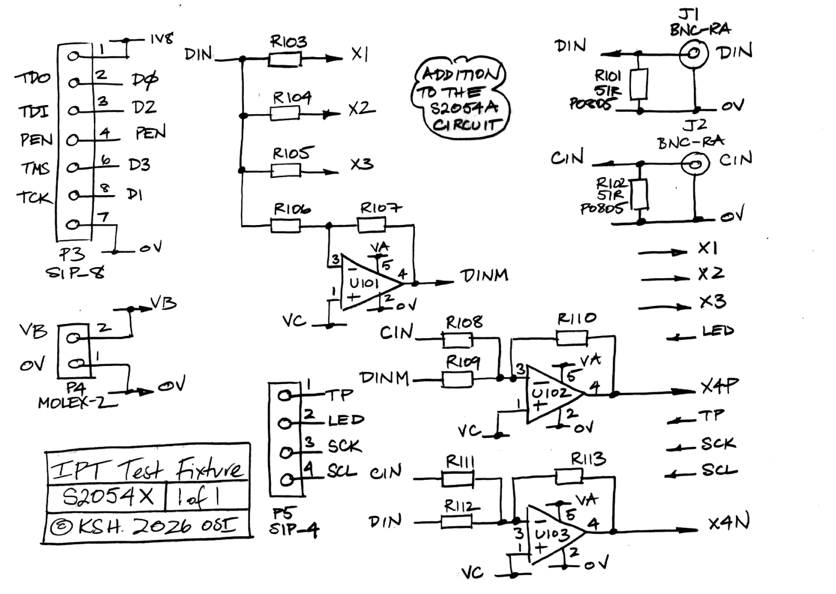 1V8
1
TDO 2 DØ
TDI 3 D2
PEN 4 PEN
TMS 6 D3
TCK 8 D1
7
0V
P3
SIP-8
VB
VB 2
0V 1
0V
P4
MOLEX-2
DIN R103 X1
R104 X2
R105 X3
R106 R107
VA
3 5
- 4
U101 DINM
1 + 2
0V
VC
ADDITION
TO THE
S2054A
CIRCUIT
J1
BNC-RA
DIN DIN
R101
51R
P0805 0V
J2
BNC-RA
CIN CIN
R102
51R
P0805 0V
X1
X2
X3
LED
CIN R108 R110
DINM R109
VA
3 5
- 4
U102 X4P
1 + 2
0V
VC
TP
SCK
SCL
1 TP
2 LED
3 SCK
4 SCL
P5
SIP-4
CIN R111 R113
DIN R112
VA
- 5
3 4
U103 X4N
1 + 2
0V
VC
IPT Test Fixture
S2054X 1 of 1
© KSH. 2026 OSI